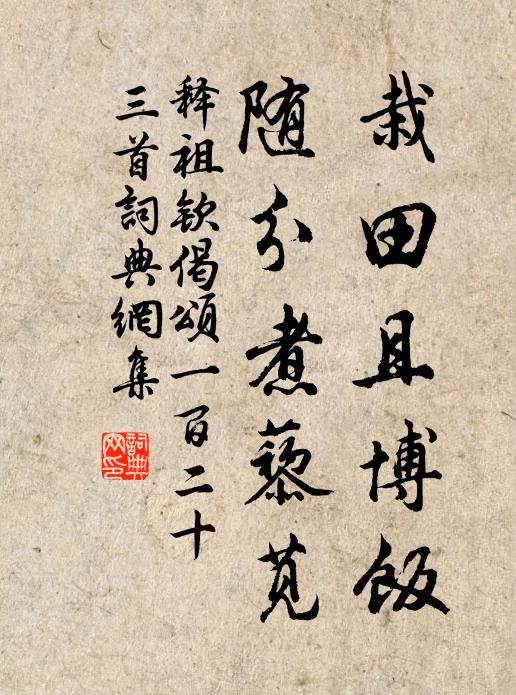 栽田且博飯
随分煮藜莧
释祖欽偈頌一百二十
三首詞典網集
詞典网印